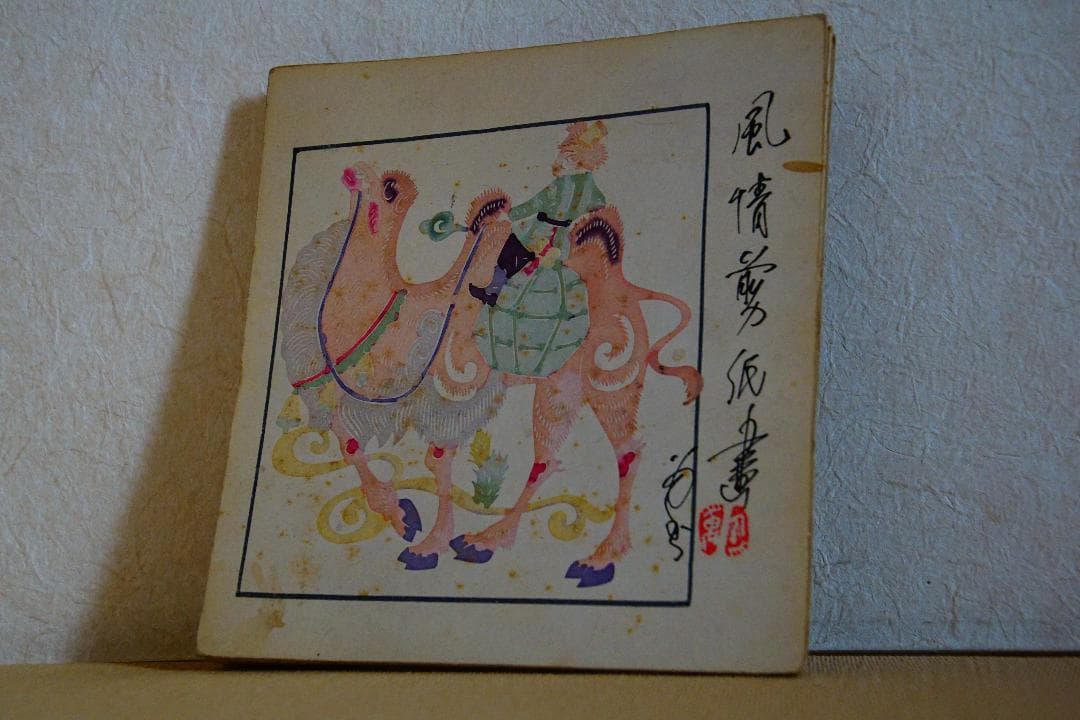 風情剪紙畫